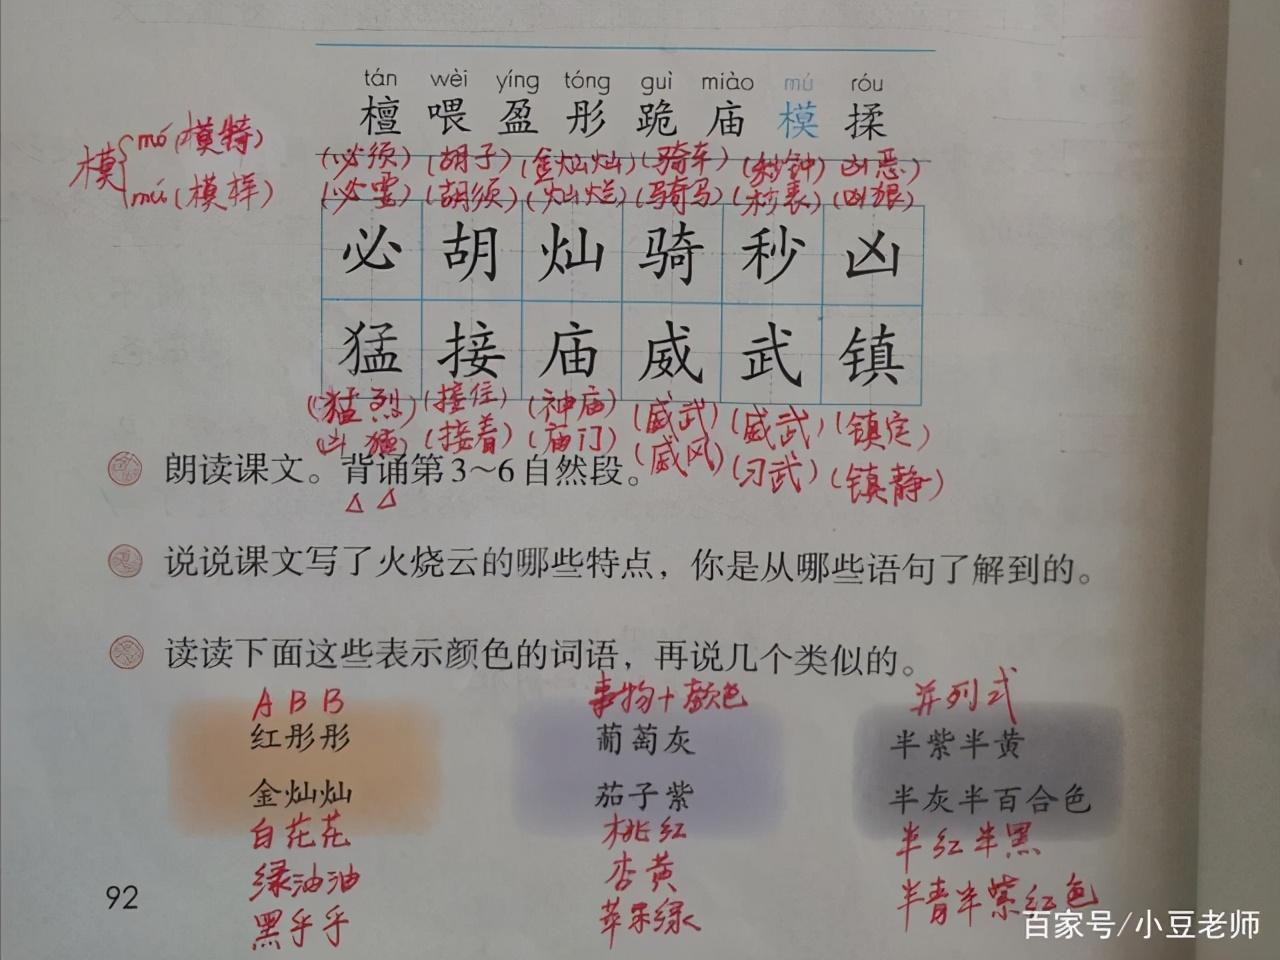 tán wèi yíng tóng guì miào mú róu
檀 喂 盈 彤 跪 庙 模 揉
模 mó(模特)
mú(模样)
(必须) (胡子) (金灿灿) (骑车) (秒钟) 凶恶)
(必需) (胡须) (灿烂) (骑马) (秒表) (凶狠)
必 胡 灿 骑 秒 凶
猛 接 庙 威 武 镇
(猛烈) (接住) (神庙) (威武) (威武) (镇定)
凶猛) (接着) (庙门) (威风) (习武) (镇静)
朗读课文。背诵第3~6自然段。
说说课文写了火烧云的哪些特点，你是从哪些语句了解到的。
读读下面这些表示颜色的词语，再说几个类似的。
ABB 事物+颜色 并列式
红彤彤 葡萄灰 半紫半黄
金灿灿 茄子紫 半灰半百合色
白花花 桃红 半红半黑
绿油油 杏黄 半青半紫红色
黑乎乎 苹果绿
92
百家号/小豆老师